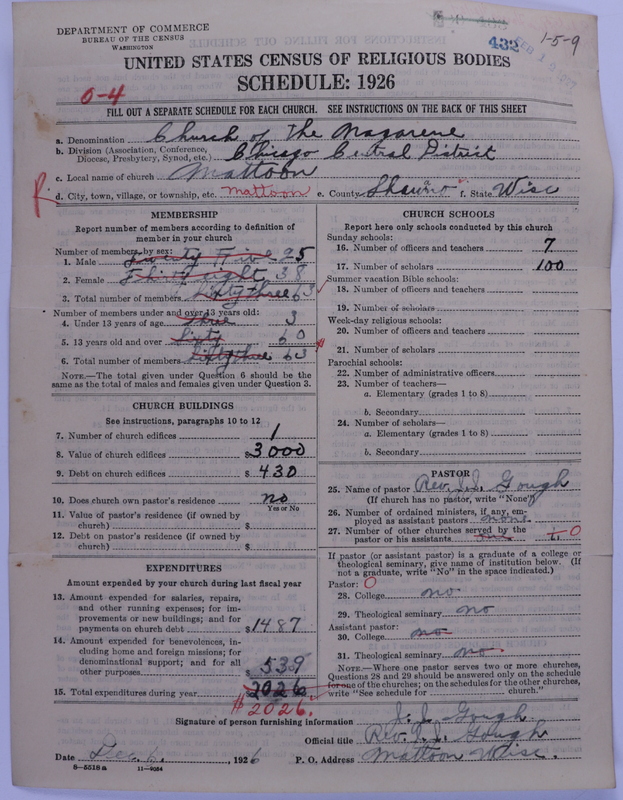 DEPARTMENT OF COMMERCE
BUREAU OF THE CENSUS
WASHINGTON
432
1-5-9
UNITED STATES CENSUS OF RELIGIOUS BODIES
SCHEDULE: 1926
0-4
FILL OUT A SEPARATE SCHEDULE FOR EACH CHURCH. SEE INSTRUCTIONS ON THE BACK OF THIS SHEET
a. Denomination Church of The Nazarene
b. Division (Association, Conference, Diocese, Presbytery, Synod, etc.) Chicago Central District
c. Local name of church Mattoon
R. d. City, town, village, or township, etc. Mattoon e. County Shawno f. State Wisc
MEMBERSHIP
Report number of members according to definition of
member in your church
Number of members by sex:
1. Male Twenty Five 25
2. Female Thirty eight 38
3. Total number of members Sixty three 63
Number of members under and over 13 years old:
4. Under 13 years of age three 3
5. 13 years old and over Sixty 60
6. Total number of members Sixty three 63
NOTE.—The total given under Question 6 should be
same as the total of males and females given under Question 3.
CHURCH BUILDINGS
See instructions, paragraphs 10 to 12
7. Number of church edifices 1
8. Value of church edifices $3000
9. Debt on church edifices $430
10. Does church own pastor's residence no
Yes or No
11. Value of pastor's residence (if owned by
church) $
12. Debt on pastor's residence (if owned by
church) $
EXPENDITURES
Amount expended by your church during last fiscal year
13. Amount expended for salaries, repairs,
and other running expenses; for im-
provements or new buildings; and for
payments on church debt $1487
14. Amount expended for benevolences, in-
cluding home and foreign missions; for
denominational support; and for all
other purposes $539
15. Total expenditures during year 2026
$2026.
CHURCH SCHOOLS
Report here only schools conducted by this church
Sunday schools:
16. Number of officers and teachers 7
17. Number of scholars 100
Summer vacation Bible schools:
18. Number of officers and teachers
19. Number of scholars
Week-day religious schools:
20. Number of officers and teachers
21. Number of scholars
Parochial schools:
22. Number of administrative officers
23. Number of teachers—
a. Elementary (grades 1 to 8)
b. Secondary
24. Number of scholars—
a. Elementary (grades 1 to 8)
b. Secondary
PASTOR
25. Name of pastor Rev. J. J. Gough
(If church has no pastor, write "None")
26. Number of ordained ministers, if any, em-
ployed as assistant pastors none
27. Number of other churches served by the
pastor or his assistants 1. 0
If pastor (or assistant pastor) is a graduate of a college or
theological seminary, give name of institution below. (If
not a graduate, write "No" in the space indicated.)
Pastor: 0
28. College no
29. Theological seminary no
Assistant pastor:
30. College no
31. Theological seminary no
NOTE.—Where one pastor serves two or more churches,
Questions 28 and 29 should be answered only on the schedule
for one of the churches; on the schedules for the other churches,
write "See schedule for church."
Signature of person furnishing information J. J. Gough
Official title Rev. J. J. Gough
Date Dec. 6, 1926 P. O. Address Mattoon Wisc.
8—5518 a 11—9054